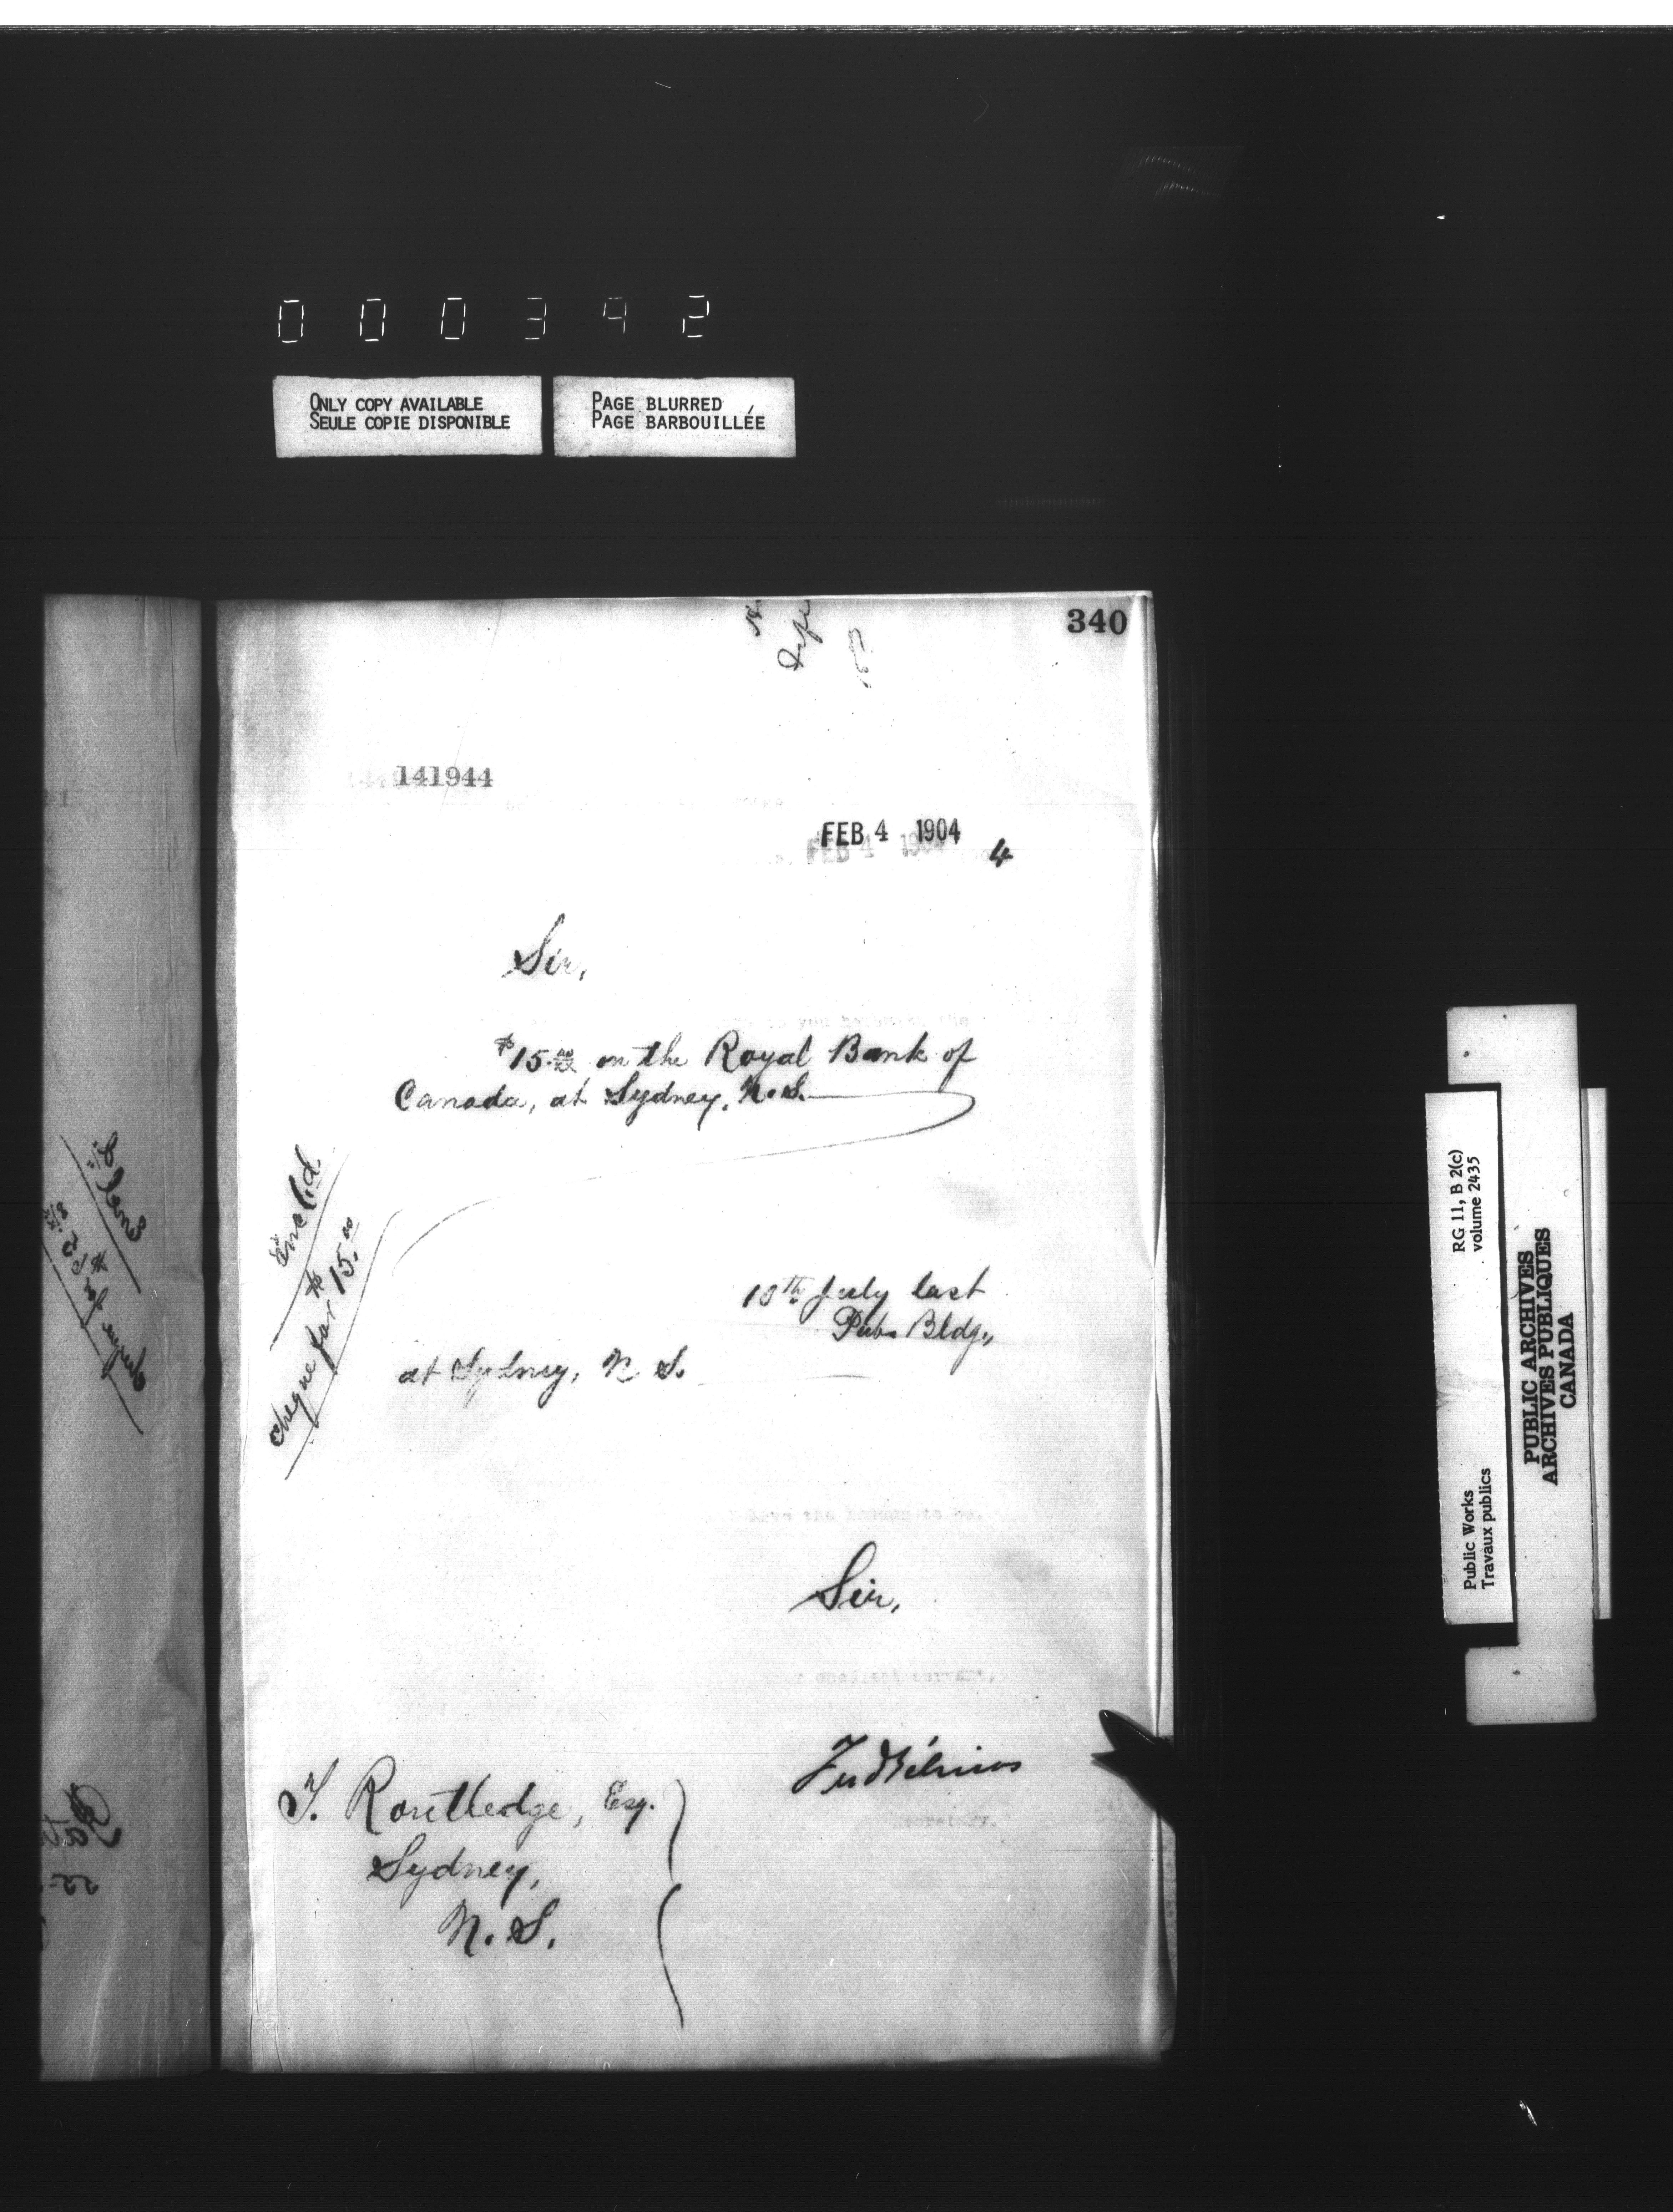 000342
ONLY COPY AVAILABLE
SEULE COPIE DISPONIBLE
PAGE BLURRED
PAGE BARBOUILLÉE
340
141944
FEB 4 1904
4
Sir,
$15.00 on the Royal Bank of
Canada, at Sydney, N.S.
Encld.
Cheque for $15.00
10th July last
Pub. Bldg.,
at Sydney, N. S.
have the honour to be,
Sir,
obedient servant,
Secretary.
T. Routledge, Esq.
Sydney,
N. S.
RG 11, B 2(c)
volume 2435
Public Works
Travaux publics
PUBLIC ARCHIVES
ARCHIVES PUBLIQUES
CANADA